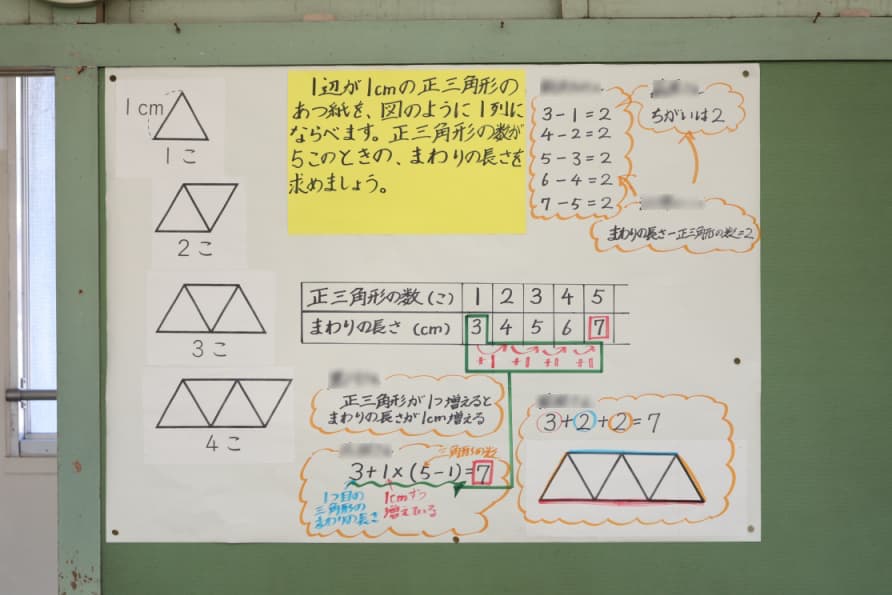 1cm
1こ
2こ
3こ
4こ
1辺が1cmの正三角形の
あつ紙を、図のように1列に
ならべます。正三角形の数が
5このときの、まわりの長さを
求めましょう。
3-1=2
4-2=2
5-3=2
6-4=2
7-5=2
ちがいは2
まわりの長さ-正三角形の数=2
正三角形の数(こ) 1 2 3 4 5
まわりの長さ(cm) 3 4 5 6 7
+1 +1 +1 +1
正三角形が1つ増えると
まわりの長さが1cm増える
三角形の数
3+1×(5-1)=7
1つ目の
三角形の
まわりの長さ
1cmずつ
増えている
3+2+2=7